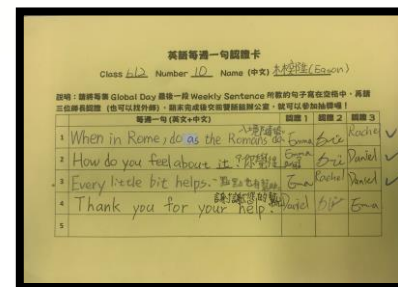 英語每週一句認證卡
Class 612 Number 10 Name (中文) 林 (Eason)
說明：請將每集 Global Day 最後一段 Weekly Sentence 所教的句子寫在空格中，再請
三位師長認證（也可以找外師），期末完成後交至雙語組辦公室，就可以參加抽獎囉！
每週一句 (英文+中文) 認證 1 認證 2 認證 3
1 When in Rome, do as the Romans do. 入境隨俗 Emma Rachel ✓
2 How do you feel about it? Emma Daniel ✓
3 Every little bit helps. Emma Rachel Daniel ✓
4 Thank you for your help. 謝謝您的幫 Daniel Emma
5